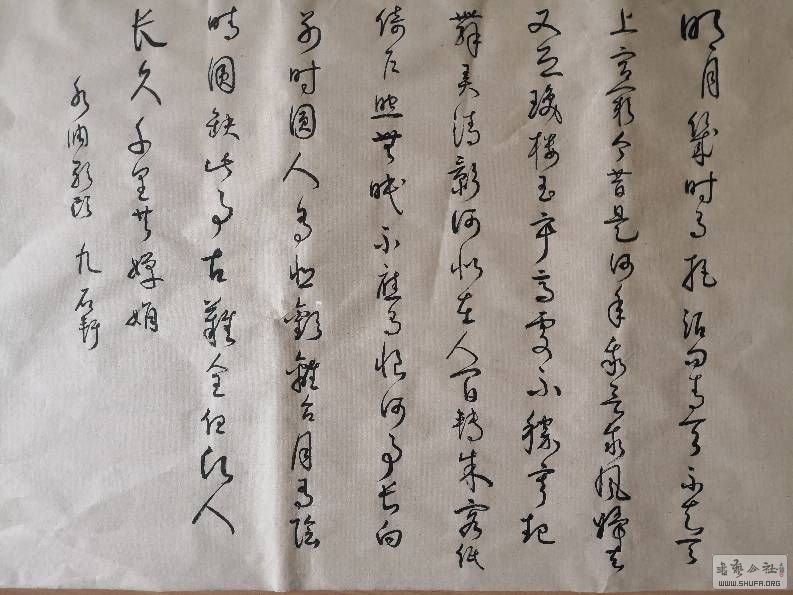 明月几时有把酒问青天不知天
上宫阙今昔是何年我欲乘风归去
又恐琼楼玉宇高处不胜寒起
舞弄清影何似在人间转朱阁低
绮户照无眠不应有恨何事长向
别时圆人有悲欢离合月有阴
晴圆缺此事古难全但愿人
长久千里共婵娟
九石轩
WWW.SHUFA.ORG